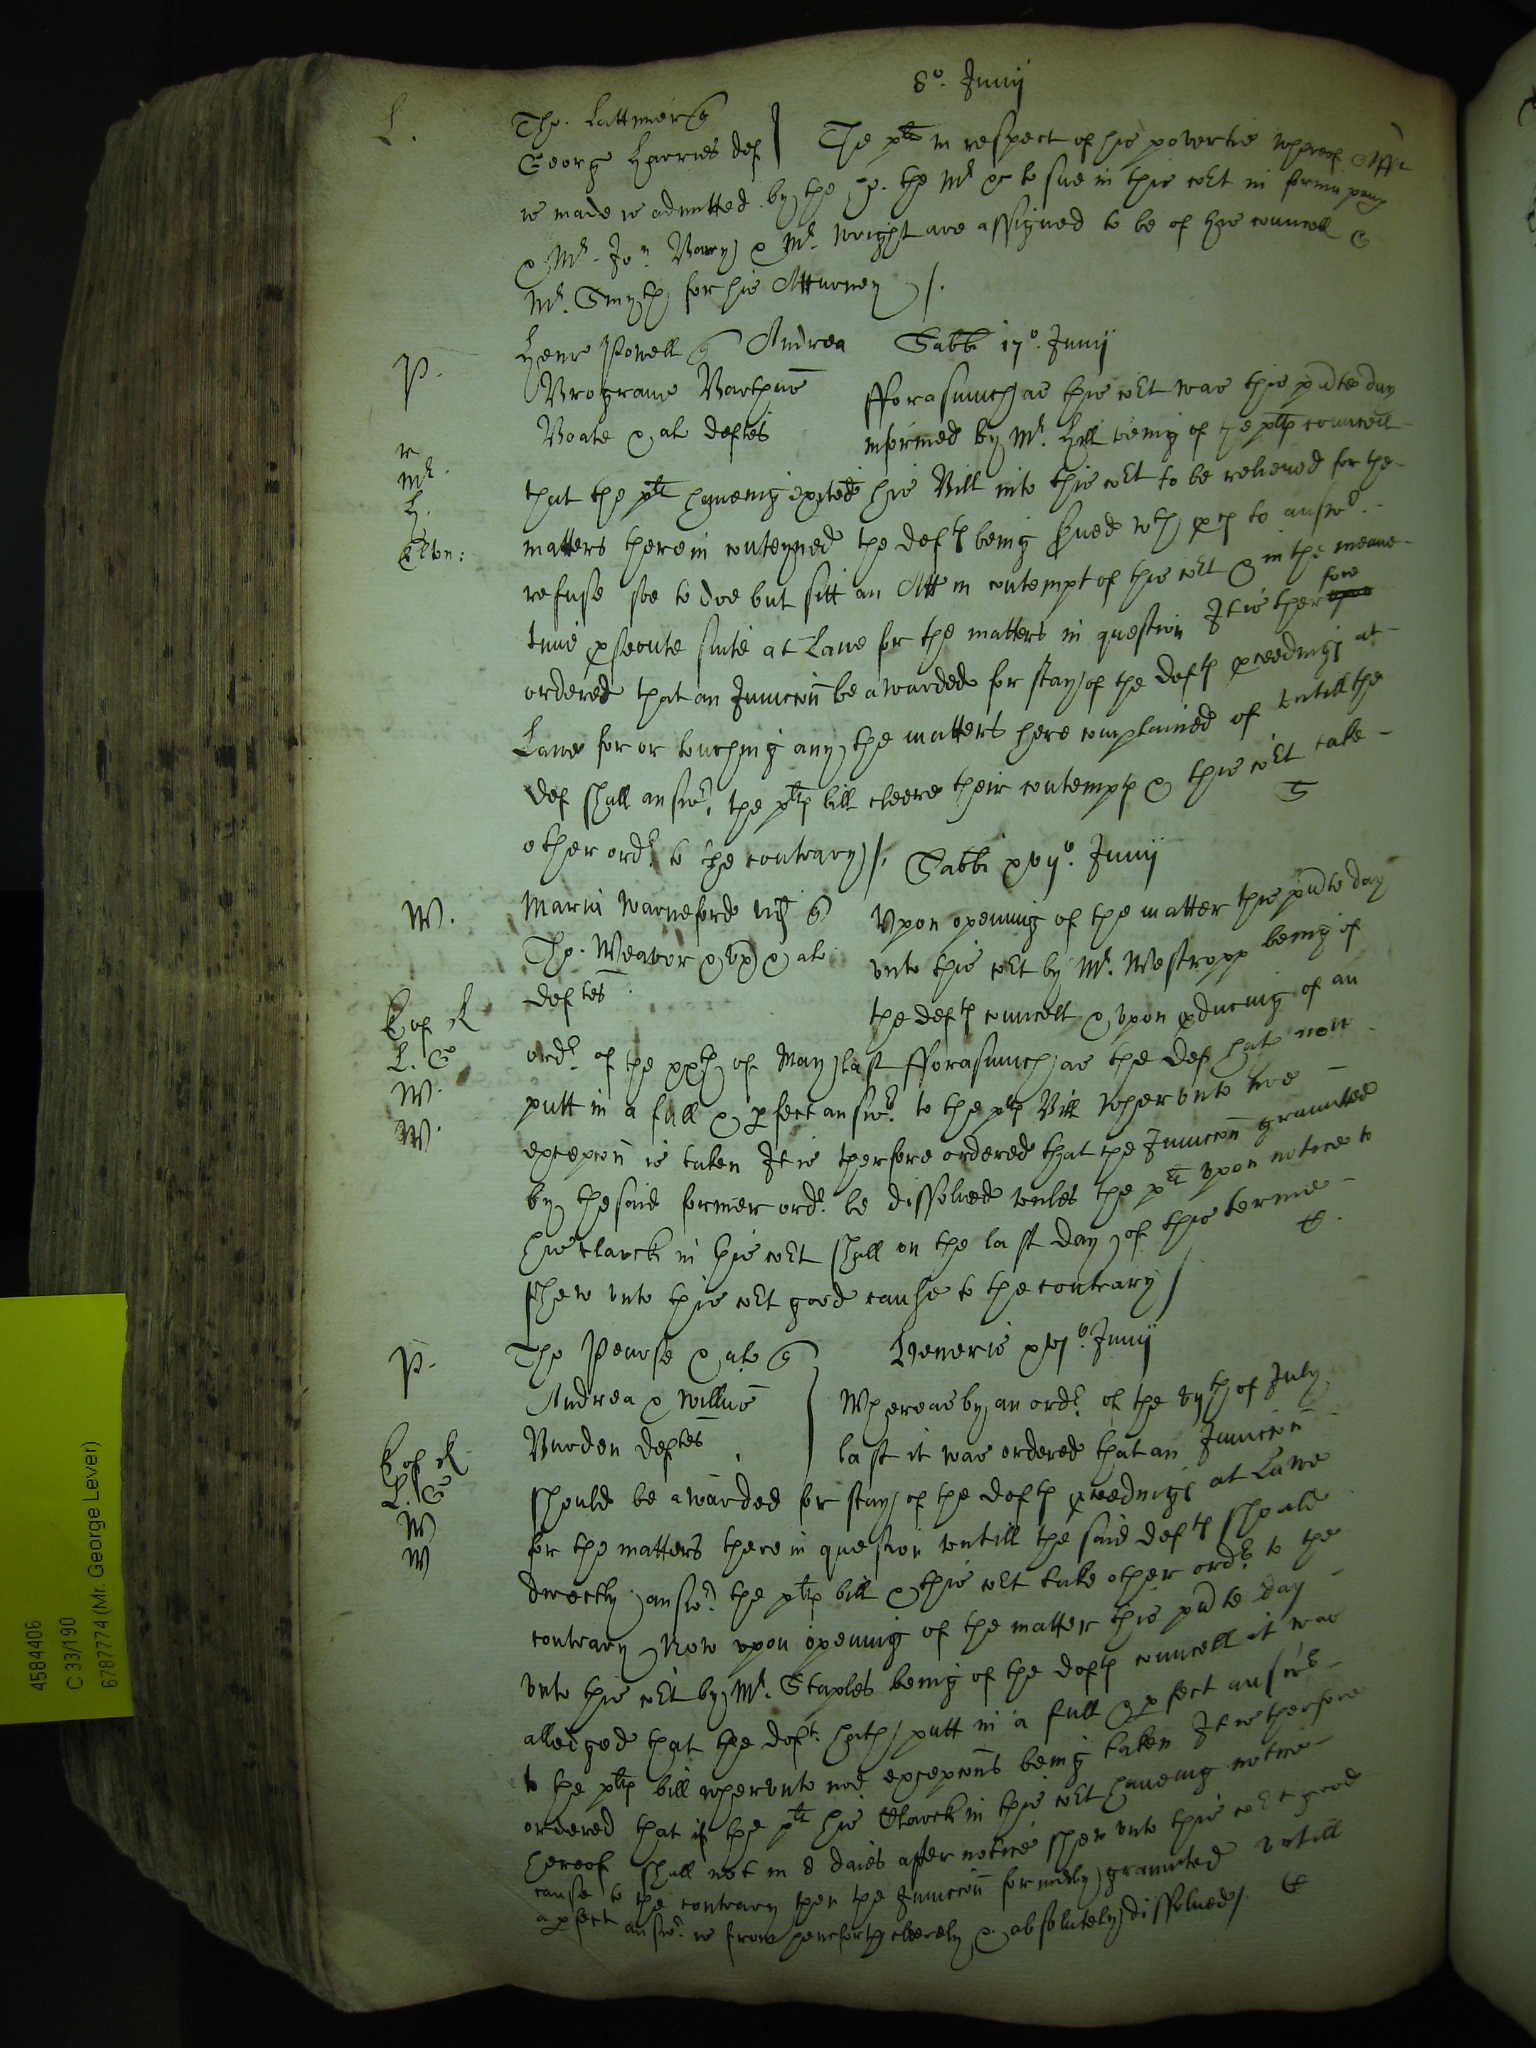 8o. Junij
L.
Tho. Lattimer q
George Harries def
The plt in respect of his povertie whereof
is made is admitted by the the Mr of to sue in this cort in forma
& Mr. Jon & Mr. Wright are assigned to be of his councell &
Mr. Smyth for his Atturney /.
P.
Henr Powell q Andrea
Sabbi 17o. Junij
Vrograve Barthus
Fforasmuch as this cort was this pnte day
Boate & al deftes
informed by Mr. Hill being of the plts councell
r
Mr.
H.
that the plt haveing exhited his Bill into this cort to be releived for the
matters therein conteyned the defts being served wth pces to answr.
refuse soe to doe but sitt an Att in contempt of this cort & in the meane
fore
time psecute suite at Lawe for the matters in question It is ther upon
ordered that an Junccon be awarded for stay of the defts pceedings at
Lawe for or touching any the matters here complained of untill the
def shall answr. the plts bill cleere their contempts & this cort take
other ordr. to the contrary /.
Sabbi xvijo. Junij
W.
Maria Warneford vid q
Upon opening of the matter this pnte day
Tho. Weavor & ux & al
unto this cort by Mr. Westropp being of
deftes
the defts councell & upon pduceing of an
L. G
W.
W.
ordr. of the xxth of May last Fforasmuch as the def hath now
putt in a full & pfect answr. to the plts Bill wherunto noe
excepcon is taken It is therfore ordered that the Junccon graunted
by the said former ordr. be dissolved unles the plt upon notice to
his clarck in this cort shall on the last day of this terme
shew unto this cort good cause to the contrary /
P.
Tho Pearse & al q
Veneris xvjo. Junij
Andrea & Willus
Whereas by an ordr. of the vijth of July
Burden deftes
last it was ordered that an Junccon
L. G
W
W
should be awarded for stay of the defts pceedings at Lawe
for the matters there in question untill the said defts should
directly answr. the plts bill & this cort take other ordr. to the
contrary Now upon opening of the matter this pnte day
unto this cort by Mr. Staples being of the defts councell it was
alledged that the deft. hath putt in a full & pfect answer
to the plts bill wherunto noe excepcons being taken It is therfore
ordered that if the plt his Clarck in this cort haveing notice
hereof shall not in 8 daies after notice shew unto this cort good
cause to the contrary then the Junccon formerly graunted untill
a pfect answr. is from henceforth cleerely & absolutely dissolved /.
4584406
C 33/190
6787774 (Mr. George Lever)